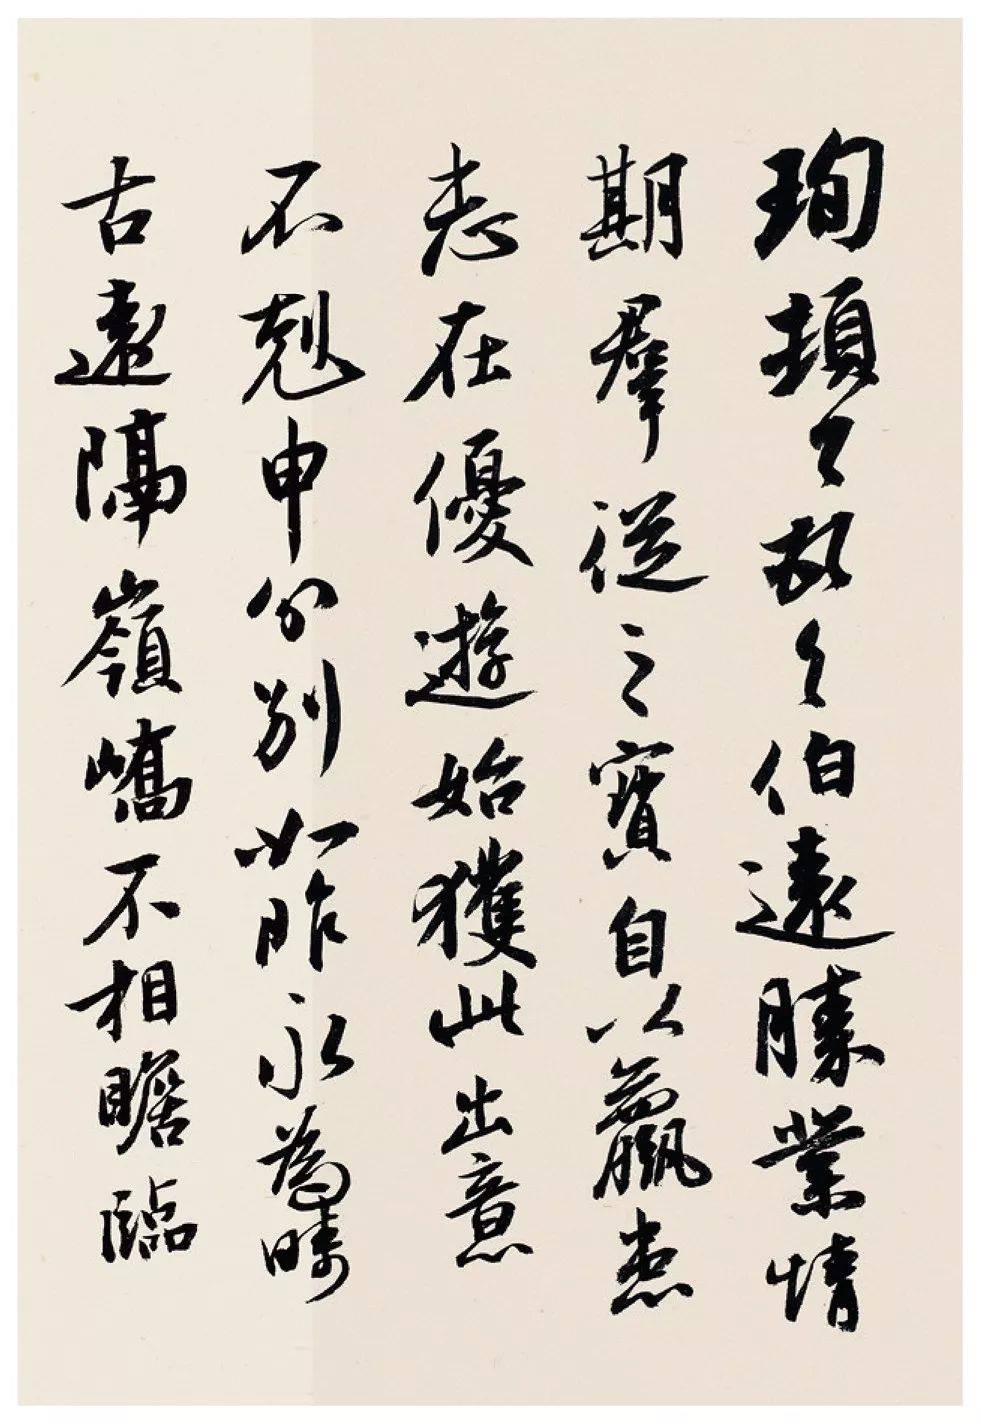 珣頓々首々伯遠勝業情
期羣從之寶自以羸患
志在優遊始獲此出意
不剋申分別如昨永為疇
古遠隔嶺嶠不相瞻臨